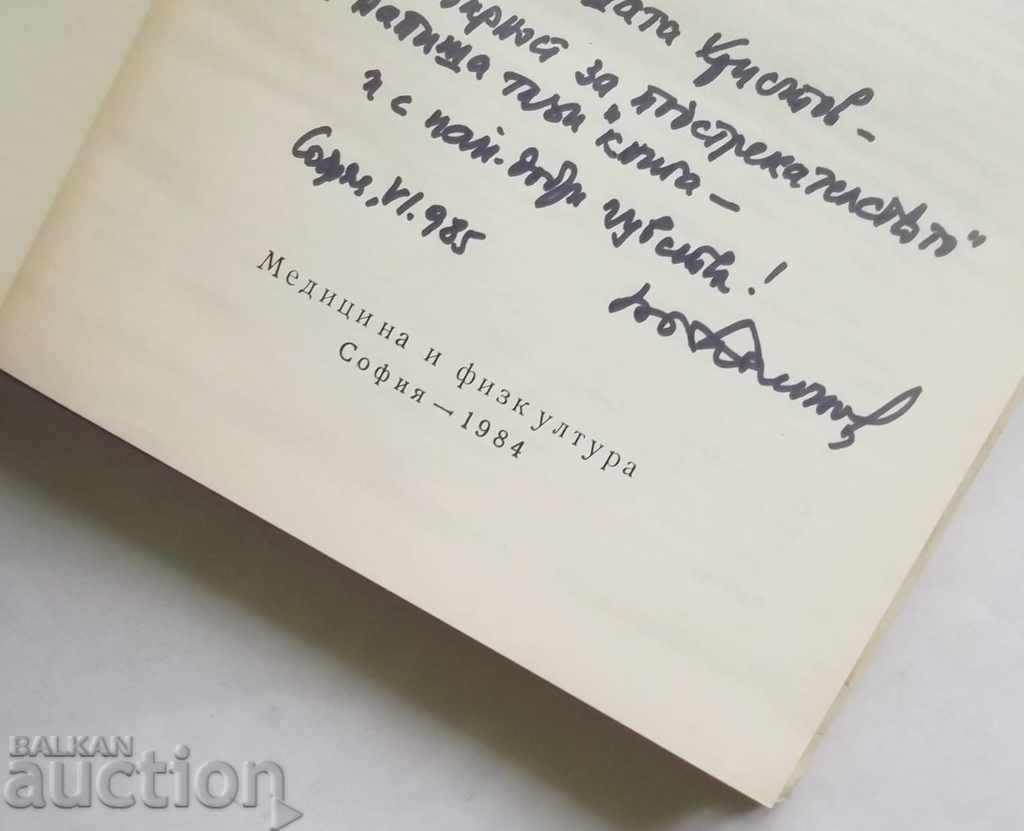 Христов –
за "подстрекателството"
напиша тази книга –
и с най-добри чувства!
София, VI.985
Медицина и физкултура
София — 1984
BALKAN
auction